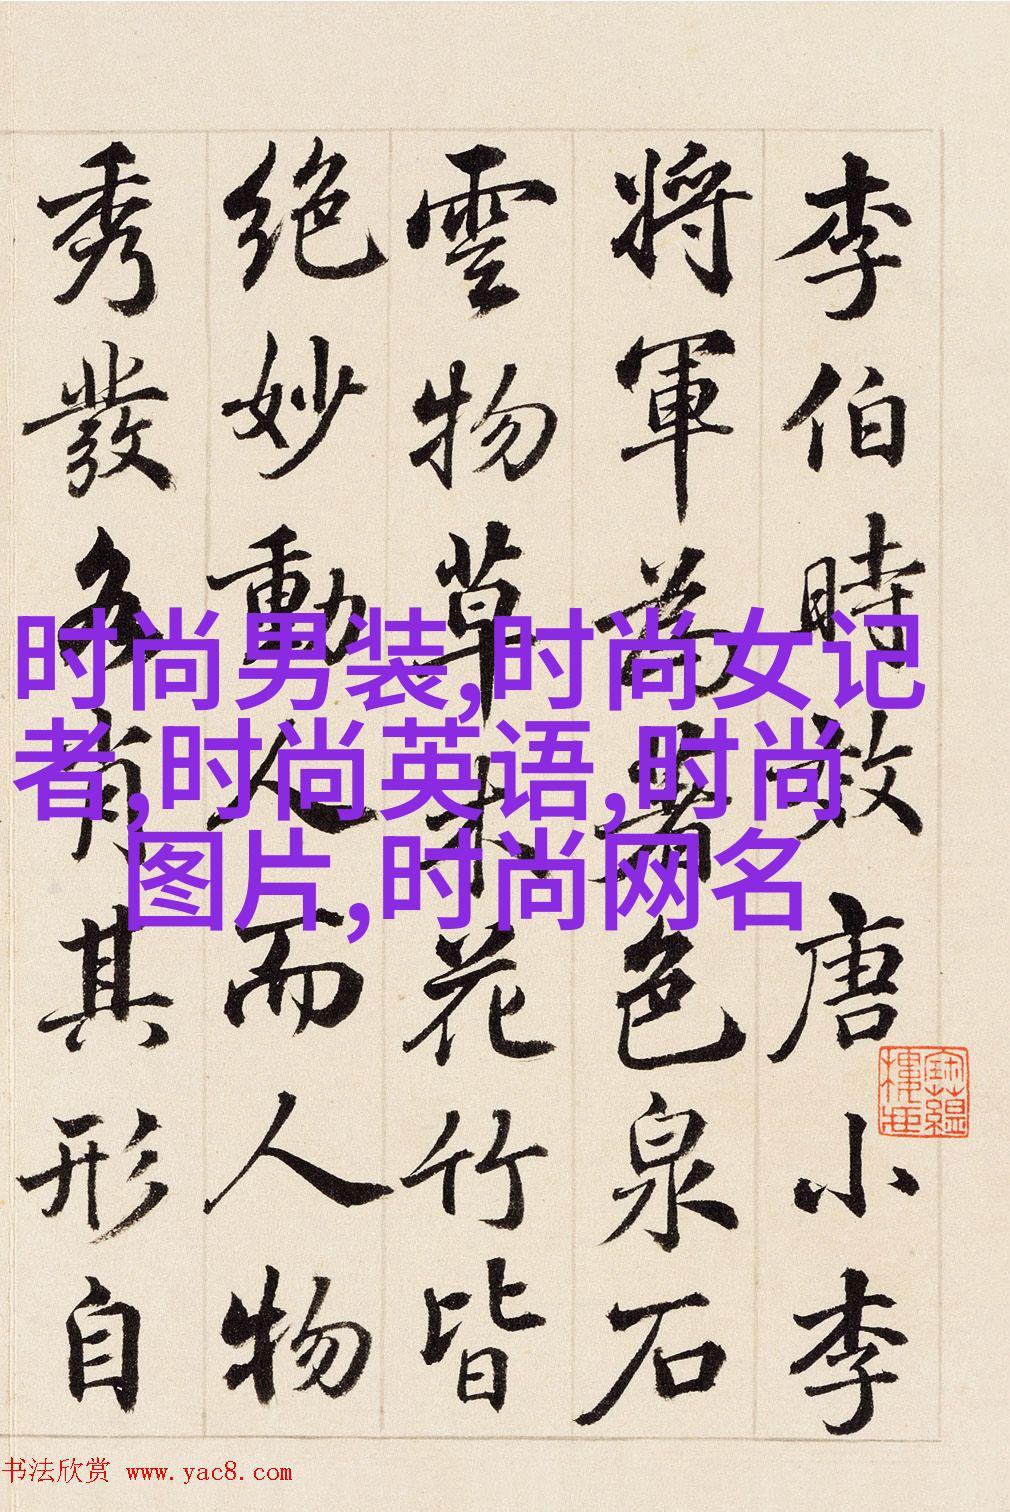 李伯時效唐小李
將軍為著色泉石
雲物草木花竹皆
絶妙動人而人物
秀發各肖其形自
时尚男装,时尚女记
者,时尚英语,时尚
图片,时尚网名
寶蘊樓
书法欣赏 www.yac8.com